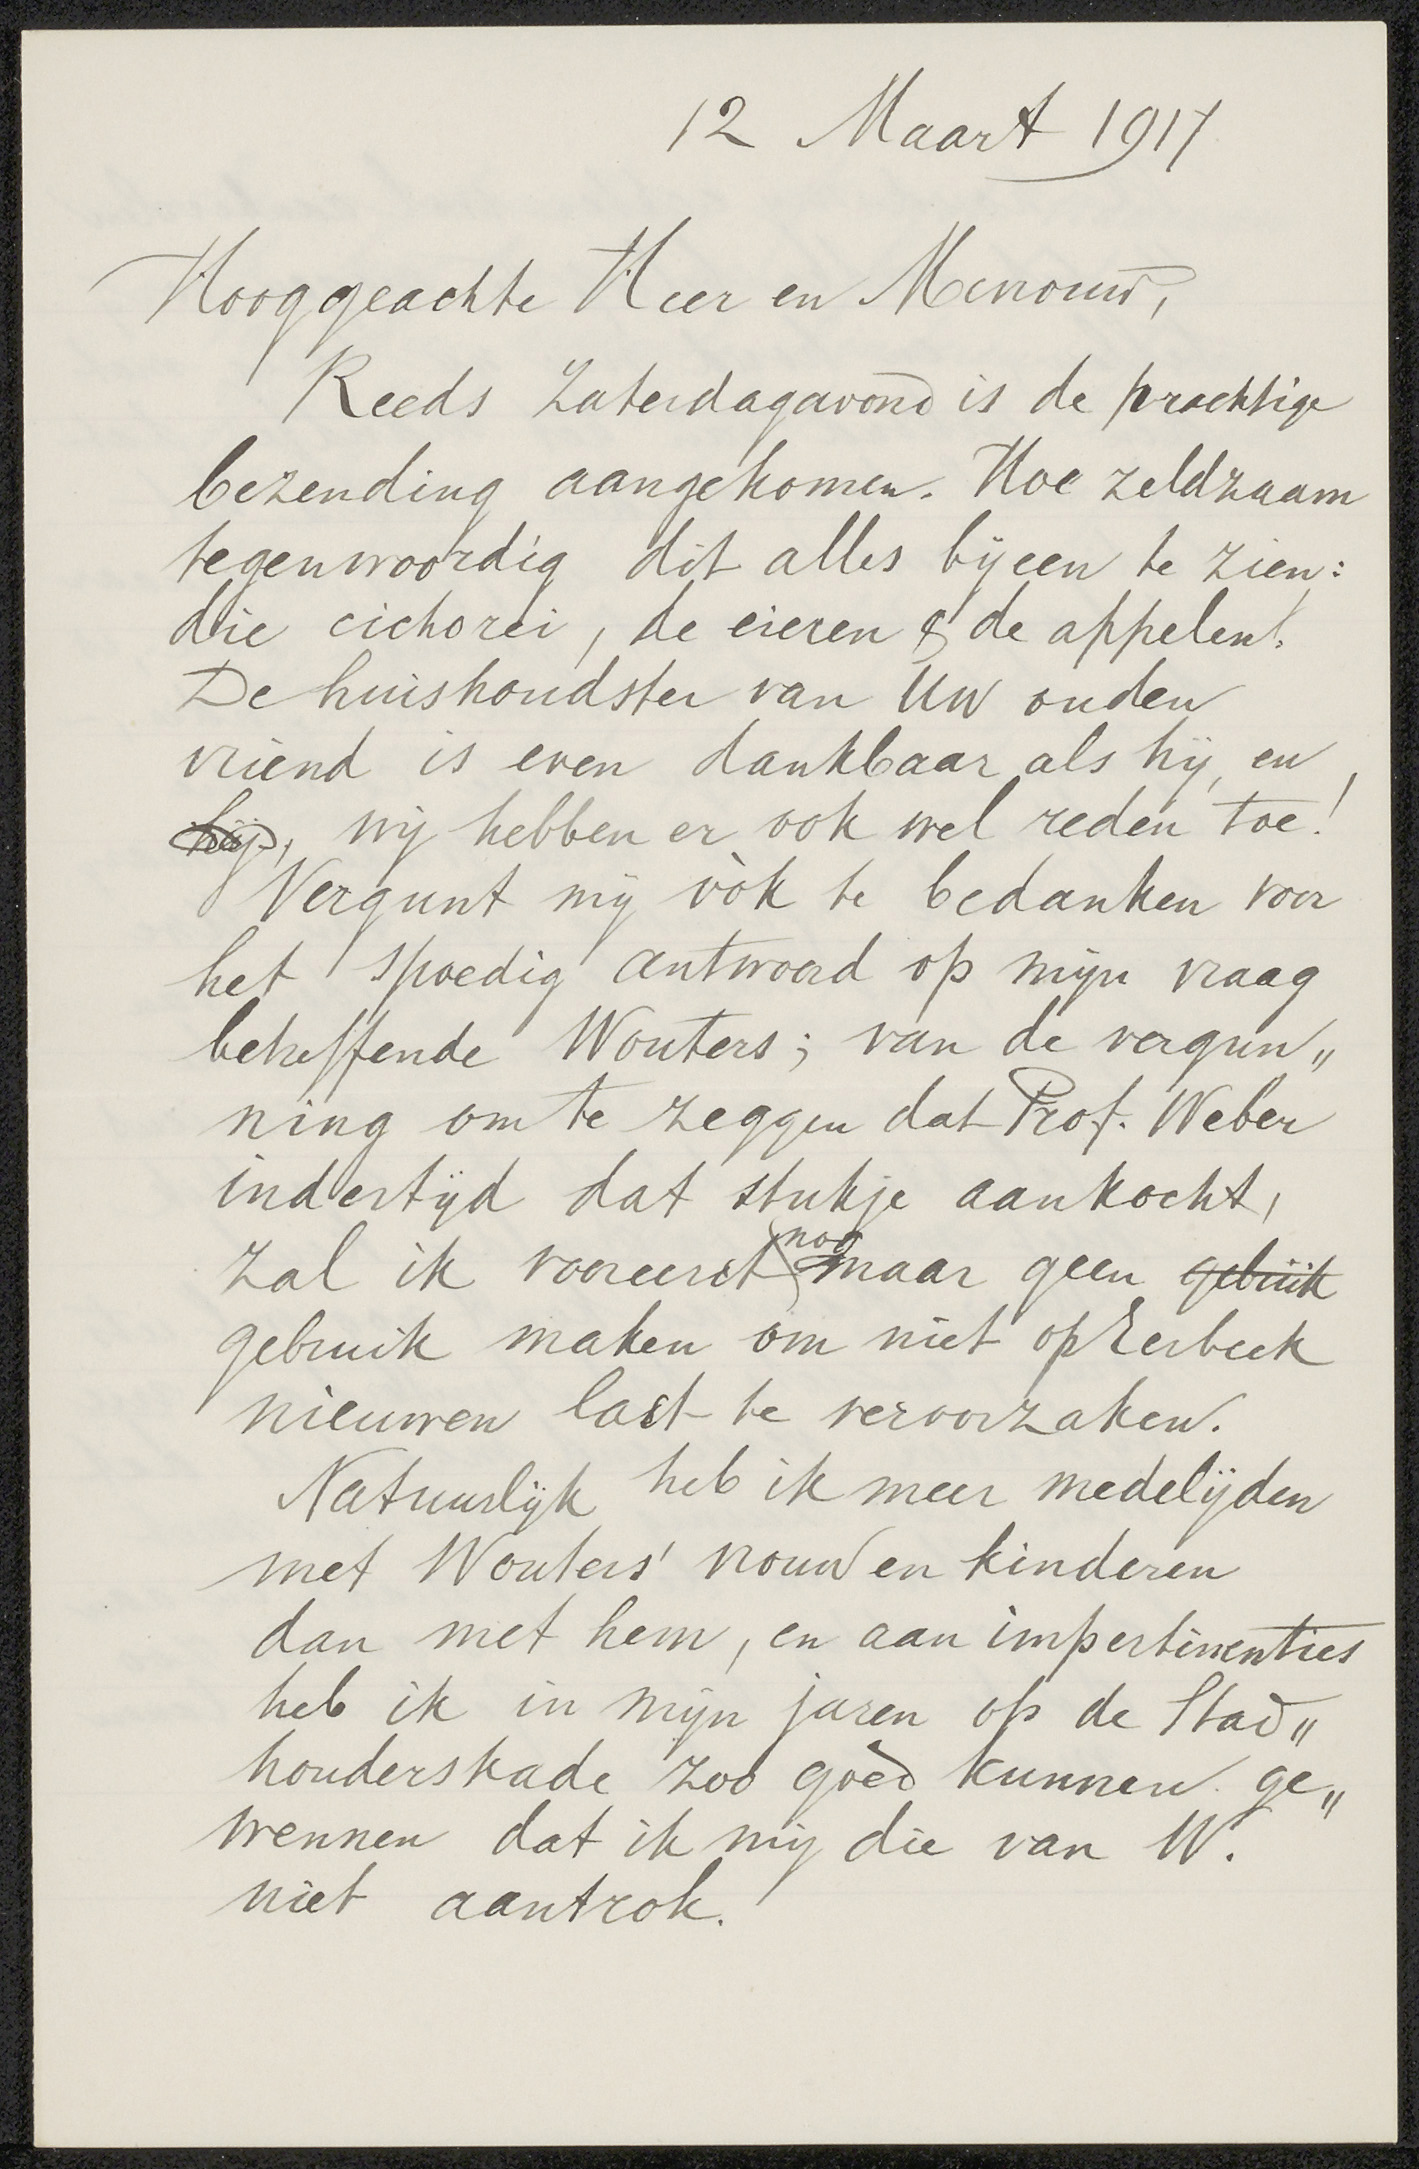 12 Maart 1917
Hooggeachte Heer en Mevrouw,
Reeds Zaterdagavond is de prachtige
bezending aangekomen. Hoe zeldzaam
tegenwoordig dit alles bijeen te zien:
die cichorei, de eieren & de appelen!
De huishoudster van Uw ouden
vriend is even dankbaar als hij, en,
hij, wij hebben er ook wel reden toe!
Vergunt mij òòk te bedanken voor
het spoedig antwoord op mijn vraag
betreffende Wouters; van de vergun„
ning om te zeggen dat Prof. Weber
indertijd dat stukje aankocht,
zal ik vooreerst nog maar geen gebruik
gebruik maken om niet op Eerbeek
nieuwen last te veroorzaken.
Natuurlijk heb ik meer medelijden
met Wouters' vrouw en kinderen
dan met hem, en aan impertinenties
heb ik in mijn jaren op de Stad„
houderskade zoo goed kunnen ge„
wennen dat ik mij die van W.
niet aantrok.